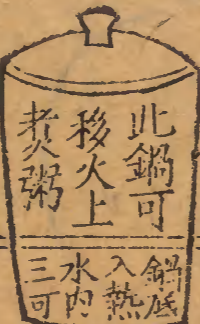 此鍋可
移火上
煑粥
鍋底
入熱
水内
三可